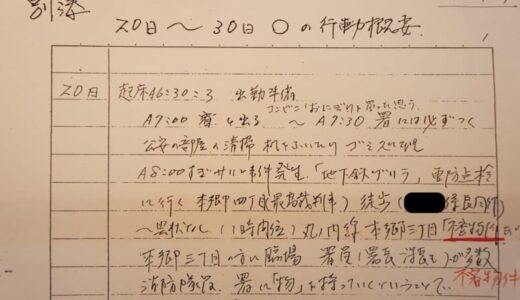 別添
20日〜30日 ○の行動概要
20日 起床A6:30ころ 出勤準備
コンビニでおにぎりを買ったと思う
A7:00 寮を出る 〜A7:30 署には必ずつく
公安の部屋の清掃 机をふいたり ゴミステ
A8:00すぎサリン事件発生 「地下鉄ゲリラ」 重防点検
に行く 本郷四丁目 徒歩 係長同行
異状なし (1時間位) 丸ノ内線 本郷三丁目「不審物件
本郷三丁目の方に臨場 署員(署長 次長も)が多数
不審物件
消防隊員 署に「物」を持っていくということで、